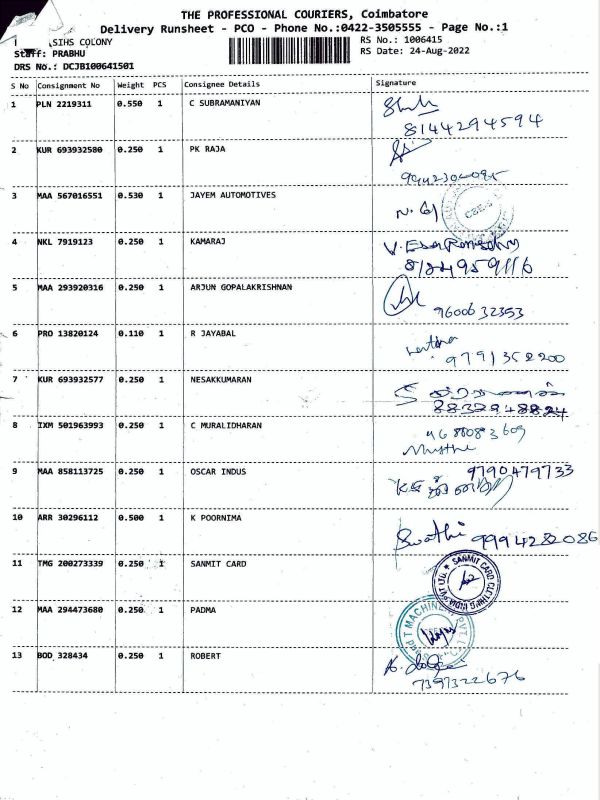 THE PROFESSIONAL COURIERS, Coimbatore
Delivery Runsheet - PCO - Phone No.:0422-3505555 - Page No.:1
SIHS COLONY
Staff: PRABHU
DRS No.: DCJB100641501
RS No.: 1006415
RS Date: 24-Aug-2022
S No Consignment No Weight PCS Consignee Details Signature
1 PLN 2219311 0.550 1 C SUBRAMANIYAN
8144294594
2 KUR 693932580 0.250 1 PK RAJA
3 MAA 567016551 0.530 1 JAYEM AUTOMOTIVES
4 NKL 7919123 0.250 1 KAMARAJ
8124959116
5 MAA 293920316 0.250 1 ARJUN GOPALAKRISHNAN
9600632353
6 PRO 13820124 0.110 1 R JAYABAL
9791352200
7 KUR 693932577 0.250 1 NESAKKUMARAN
8832948824
8 IXM 501963993 0.250 1 C MURALIDHARAN
9 MAA 858113725 0.250 1 OSCAR INDUS
9790479733
10 ARR 30296112 0.500 1 K POORNIMA
Swathi 9994282086
11 TMG 200273339 0.250 1 SANMIT CARD
SANMIT CARD CLOTHING INDIA PVT LTD
12 MAA 294473680 0.250 1 PADMA
13 BOD 328434 0.250 1 ROBERT
7397322676